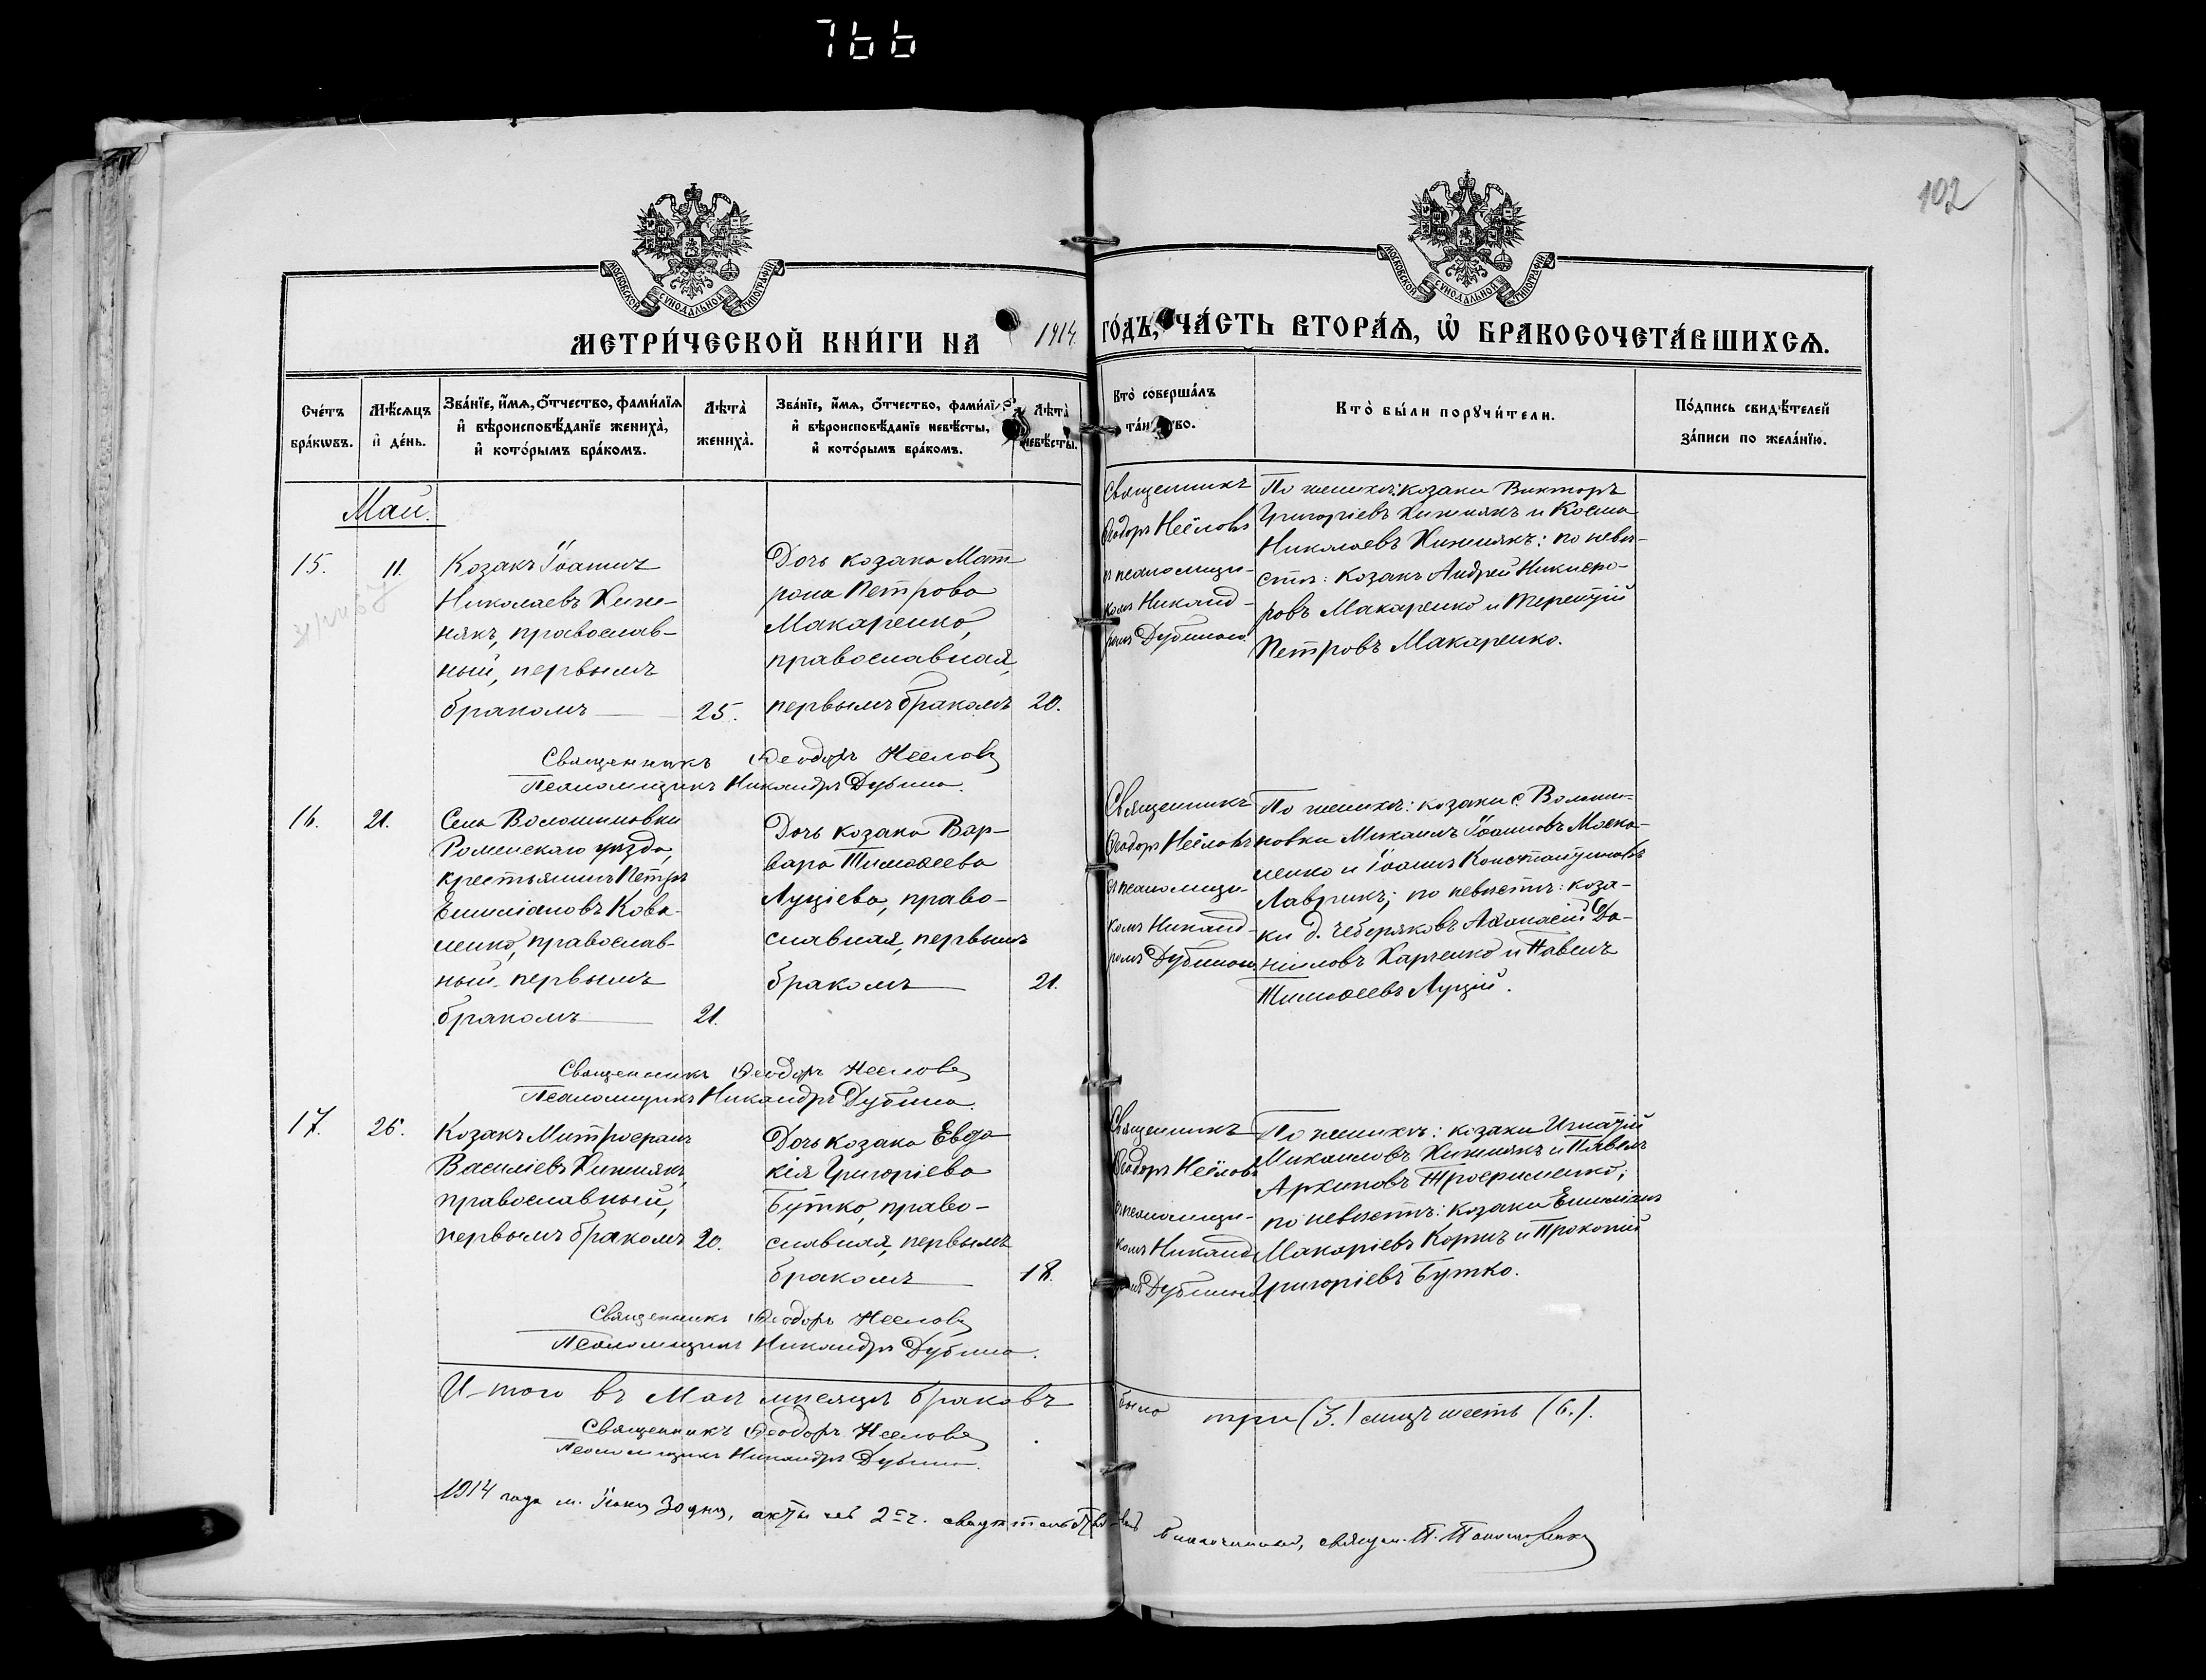 766
102
МОСКОВСКОЙ СУНОДАЛЬНОЙ ТИПОГРАФІИ
МОСКОВСКОЙ СУНОДАЛЬНОЙ ТИПОГРАФІИ
МЕТРИ́ЧЕСКОЙ КНИ́ГИ НА 1914. ГО́ДЪ, ЧА́СТЬ ВТОРА́Я, Ѡ҆ БРАКОСОЧЕТА́ВШИХСѦ.
Сче́тъ бра́кѡвъ.
Мѣ́сяцъ и҆ де́нь.
Зва́нїе, и҆́мѧ, ѻ҆́тчество, фами́лїѧ
и҆ вѣроисповѣ́данїе жениха̀,
и҆ кото́рымъ бра́комъ.
Лѣта̀ жениха̀.
Зва́нїе, и҆́мѧ, ѻ҆́тчество, фами́лї
и҆ вѣроисповѣ́данїе невѣ́сты,
и҆ кото́рымъ бра́комъ.
Лѣта̀ невѣ́сты.
Кто̀ соверша́лъ
та́н во.
Кто̀ бы́ли порꙋчи́тели.
По́дпись свидѣ́телей
за́писи по жела́нїю.
Май.
15.
11.
Козакъ Іоаннъ
Николаевъ Хиж-
някъ, православ-
ный, первымъ
бракомъ
25.
Дочь козака Мат-
рона Петрова
Макаренко,
православная,
первымъ бракомъ
20.
Священникъ
Ѳеодоръ Неёловъ
съ псаломщи-
комъ Никанд-
ромъ Дубиною.
По женихѣ: козаки Викторъ
Григоріевъ Хижнякъ и Косма
Николаевъ Хижнякъ: по невѣ-
стѣ: козакъ Андрей Никифо-
ровъ Макаренко и Терентій
Петровъ Макаренко.
Священникъ Ѳеодоръ Неёловъ
Псаломщикъ Никандръ Дубина.
16.
21.
Села Волошиновки
Роменскаго уѣзда,
крестьянинъ Петръ
Емиліановъ Кова-
ленко, православ-
ный, первымъ
бракомъ
21.
Дочь козака Вар-
вара Тимоѳеева
Луціева, право-
славная, первымъ
бракомъ
21.
Священникъ
Ѳеодоръ Неёловъ
съ псаломщи-
комъ Никанд-
ромъ Дубиною.
По женихѣ: козаки с. Волоши-
новки Михаилъ Іоанновъ Моска-
ленко и Іоаннъ Константиновъ
Лаврикъ; по невѣстѣ: коза-
ки д. Чеберяковъ Аѳанасій Да-
ніиловъ Харченко и Павелъ
Тимоѳеевъ Луцій.
Священникъ Ѳеодоръ Неёловъ
Псаломщикъ Никандръ Дубина.
17.
25.
Козакъ Митрофанъ
Василіевъ Хижнякъ,
православный,
первымъ бракомъ
20.
Дочь козака Евдо-
кія Григоріева
Бутко, право-
славная, первымъ
бракомъ
18.
Священникъ
Ѳеодоръ Неёловъ
съ псаломщи-
комъ Никанд-
ромъ Дубиною.
По женихѣ: козаки Игнатій
Михаиловъ Хижнякъ и Павелъ
Архиповъ Трофименко;
по невѣстѣ: козаки Емиліанъ
Макаріевъ Коржъ и Прокопій
Григоріевъ Бутко.
Священникъ Ѳеодоръ Неёловъ
Псаломщикъ Никандръ Дубина.
И-того въ Маѣ мѣсяцѣ браковъ было три (3.) лицъ шесть (6.).
Священникъ Ѳеодоръ Неёловъ
Псаломщикъ Никандръ Дубина.
1914 года м. Іюня 30 дня, акты сей 2-й ч. свидѣтельствовалъ
Благочинный, священ. П.